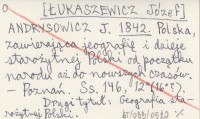 [ŁUKASZEWICZ Józef]
ANDRYSOWICZ J. 1842. Polska,
zawierająca jeografię i dzieje
starożytnej Polski od początku
narodu aż do nowszych czasów.
– Poznań. Ss. 146, 12° (16°).
Drugi tytuł: Geografia sta-
rożytnej Polski.